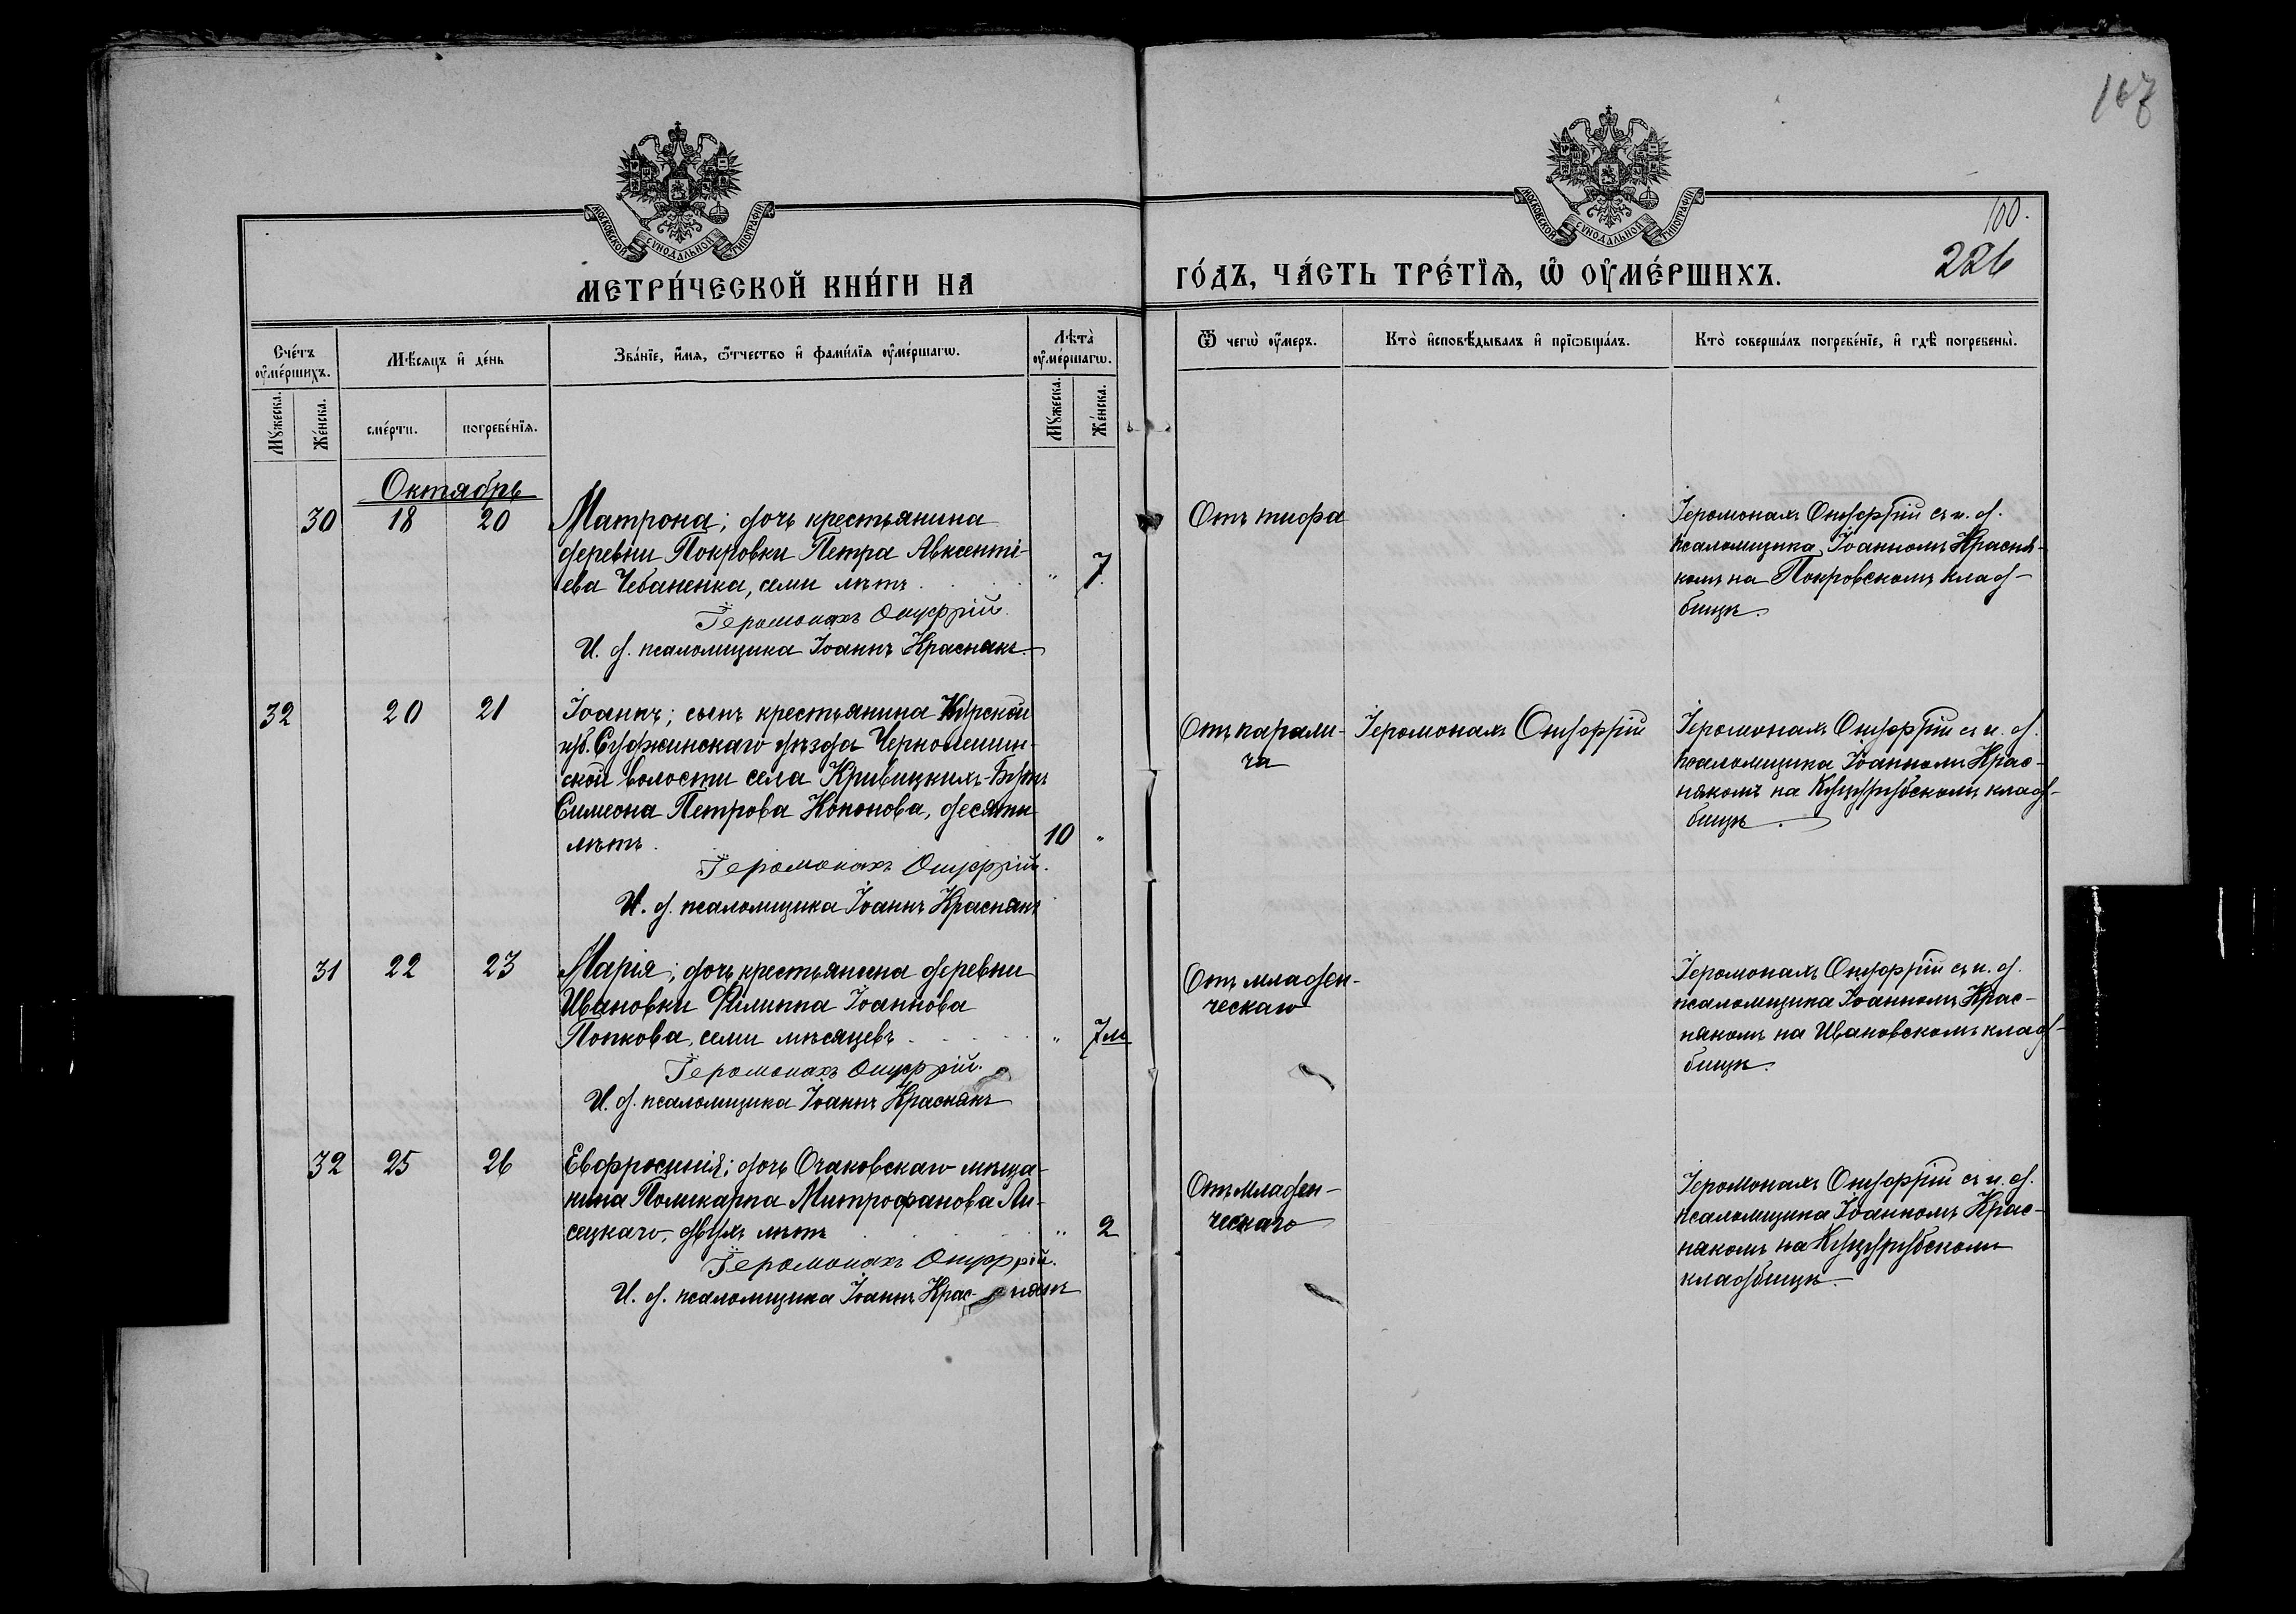 167
МОСКОВСКОЙ СѴНОДАЛЬНОЙ ТИПОГРАФІИ
МОСКОВСКОЙ СѴНОДАЛЬНОЙ ТИПОГРАФІИ
100.
226
МЕТРИ́ЧЕСКОЙ КНИ́ГИ НА
ГО́ДЪ, ЧА́СТЬ ТРЕ́ТЇѦ, Ѡ҆ ОУ҆МЕ́РШИХЪ.
Сче́тъ оу҆ме́ршихъ.
Мѣ́сѧцъ и҆ де́нь
Зва́нїе, и҆́мѧ, ѻ҆́тчество и҆ фами́лїѧ оу҆ме́ршагѡ.
Лѣ́та оу҆ме́ршагѡ.
Ѿ чегѡ̀ оу҆́меръ.
Кто̀ и҆сповѣ́дывалъ и҆ прїѡбща́лъ.
Кто̀ соверша́лъ погребе́нїе, и҆ гдѣ̀ погребены̀.
Мꙋ́жеска.
Же́нска.
сме́рти.
погребе́нїѧ.
Мꙋ́жеска.
Же́нска.
Октябрь
30 18 20 Матрона; дочь крестьянина
деревни Покровки Петра Авксенті-
ева Чебаненка, семи лѣтъ. " 7.
Іеромонахъ Онуфрій.
И. д. псаломщика Іоаннъ Краснякъ.
Отъ тифа
Іеромонахъ Онуфрій съ и. д.
псаломщика Іоанномъ Красня-
комъ на Покровскомъ клад-
бищѣ.
32 20 21 Іоаннъ; сынъ крестьянина Курской
губ. Суджинскаго уѣзда Черно
ской волости села Кривицкихъ-Будъ
Симеона Петрова Кононова, десяти
лѣтъ. 10 "
Іеромонахъ Онуфрій.
И. д. псаломщика Іоаннъ Краснякъ
Отъ парали-
ча
Іеромонахъ Онуфрій
Іеромонахъ Онуфрій съ и. д.
псаломщика Іоанномъ Крас-
някомъ на Куцурубскомъ клад-
бищѣ.
31 22 23 Марія; дочь крестьянина деревни
Ивановки Филиппа Іоаннова
Попкова, семи мѣсяцевъ " 7 м
Іеромонахъ Онуфрій.
И. д. псаломщика Іоаннъ Краснякъ
Отъ младен-
ческаго
Іеромонахъ Онуфрій съ и. д.
псаломщика Іоанномъ Крас-
някомъ на Ивановскомъ клад-
бищѣ.
32 25 26 Евфросинія; дочь Очаковскаго мѣща-
нина Поликарпа Митрофанова Ли-
сецкаго, двухъ лѣтъ " 2
Іеромонахъ Онуфрій.
И. д. псаломщика Іоаннъ Крас-някъ
Отъ младен-
ческаго
Іеромонахъ Онуфрій съ и. д.
псаломщика Іоанномъ Крас-
някомъ на Куцурубскомъ
кладбищѣ.